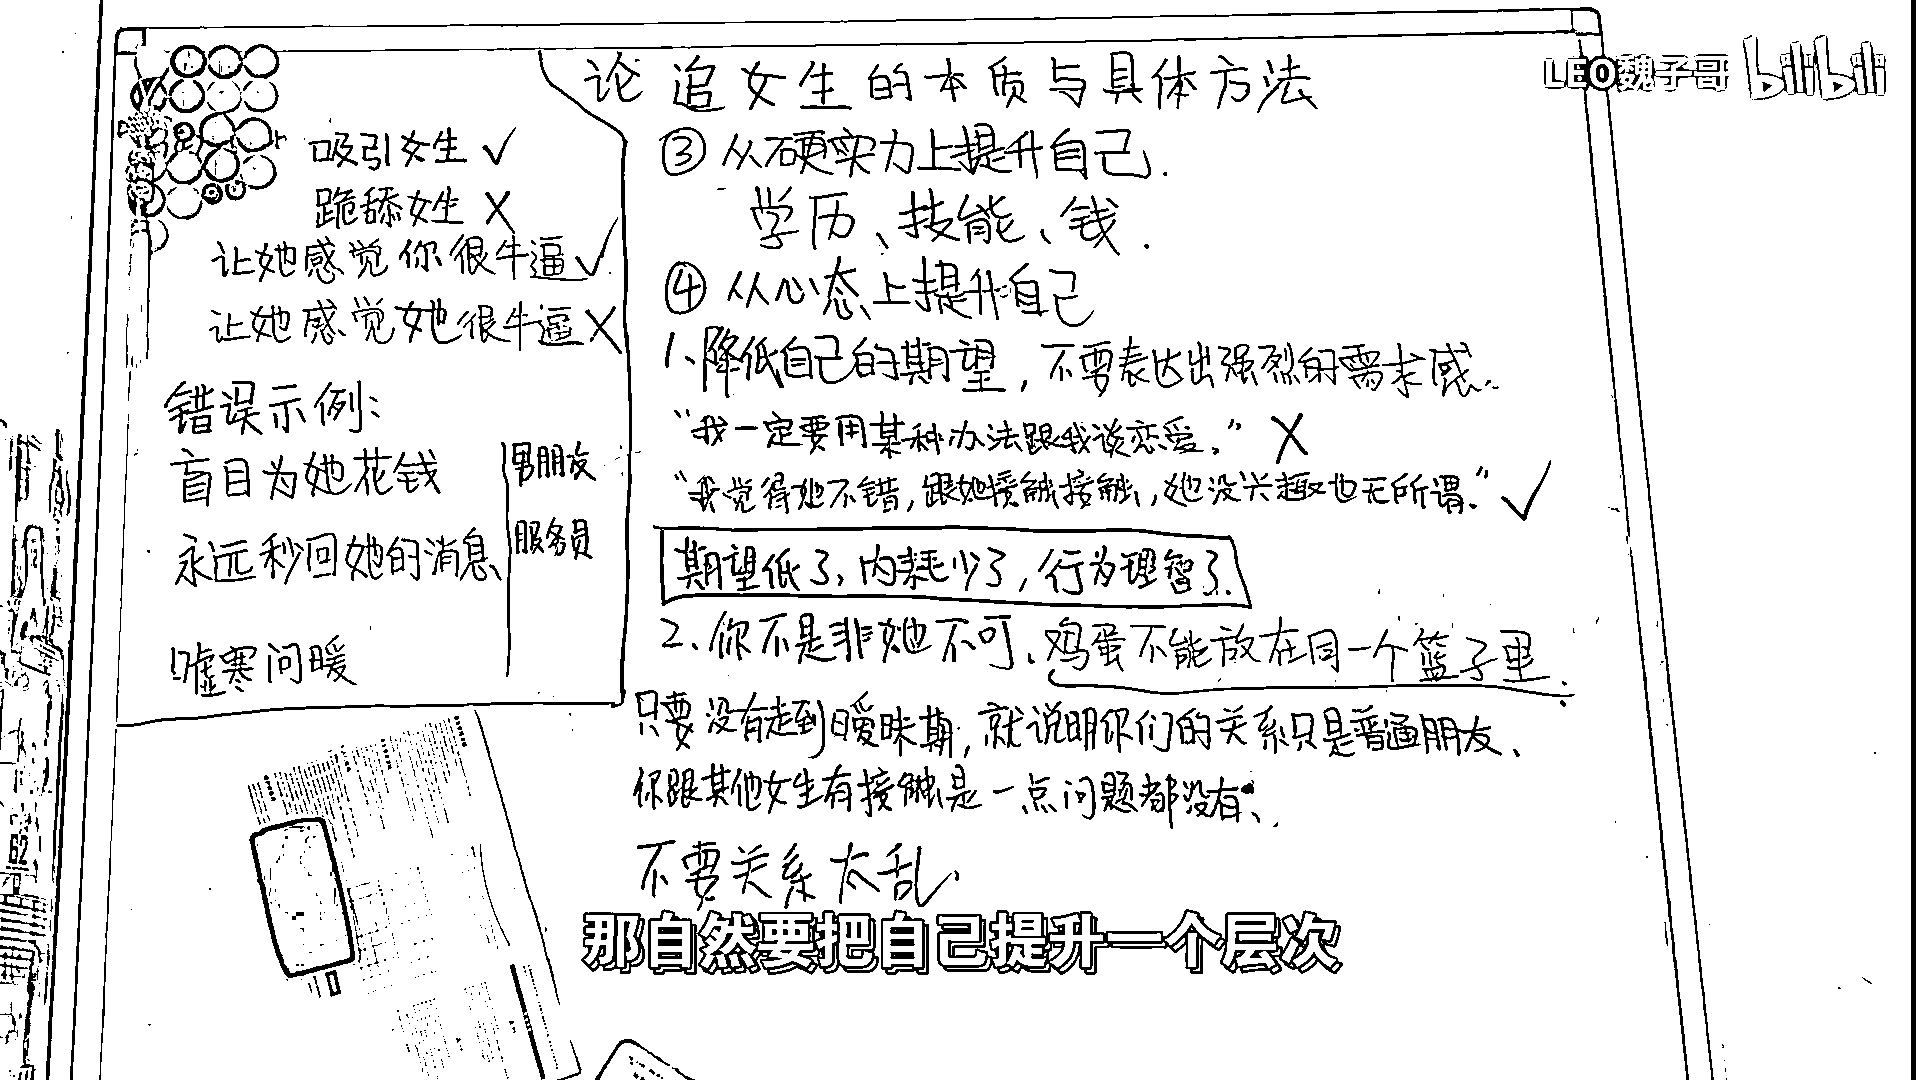 论追女生的本质与具体方法
LEO魏子哥 bilibili
吸引女生 ✓
跪舔女生 X
让她感觉你很牛逼 ✓
让她感觉她很牛逼 X
错误示例:
盲目为她花钱
男朋友
永远秒回她的消息
服务员
嘘寒问暖
③ 从硬实力上提升自己.
学历、技能、钱.
④ 从心态上提升自己
1、降低自己的期望，不要表达出强烈的需求感.
“我一定要用某种办法跟我谈恋爱。” X
“我觉得她不错，跟她接触接触，她没兴趣也无所谓。” ✓
期望低了，内耗少了，行为理智了.
2、你不是非她不可、鸡蛋不能放在同一个篮子里.
只要没有走到暧昧期，就说明你们的关系只是普通朋友、
你跟其他女生有接触是一点问题都没有、
不要关系太乱.
那自然要把自己提升一个层次
62